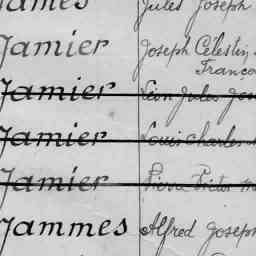 James Jules Joseph
Jamier Joseph Célestin
Franço
Jamier Léon Jules Jos
Jamier Louis Charles
Jamier Pierre Victor
Jammes Alfred Joseph